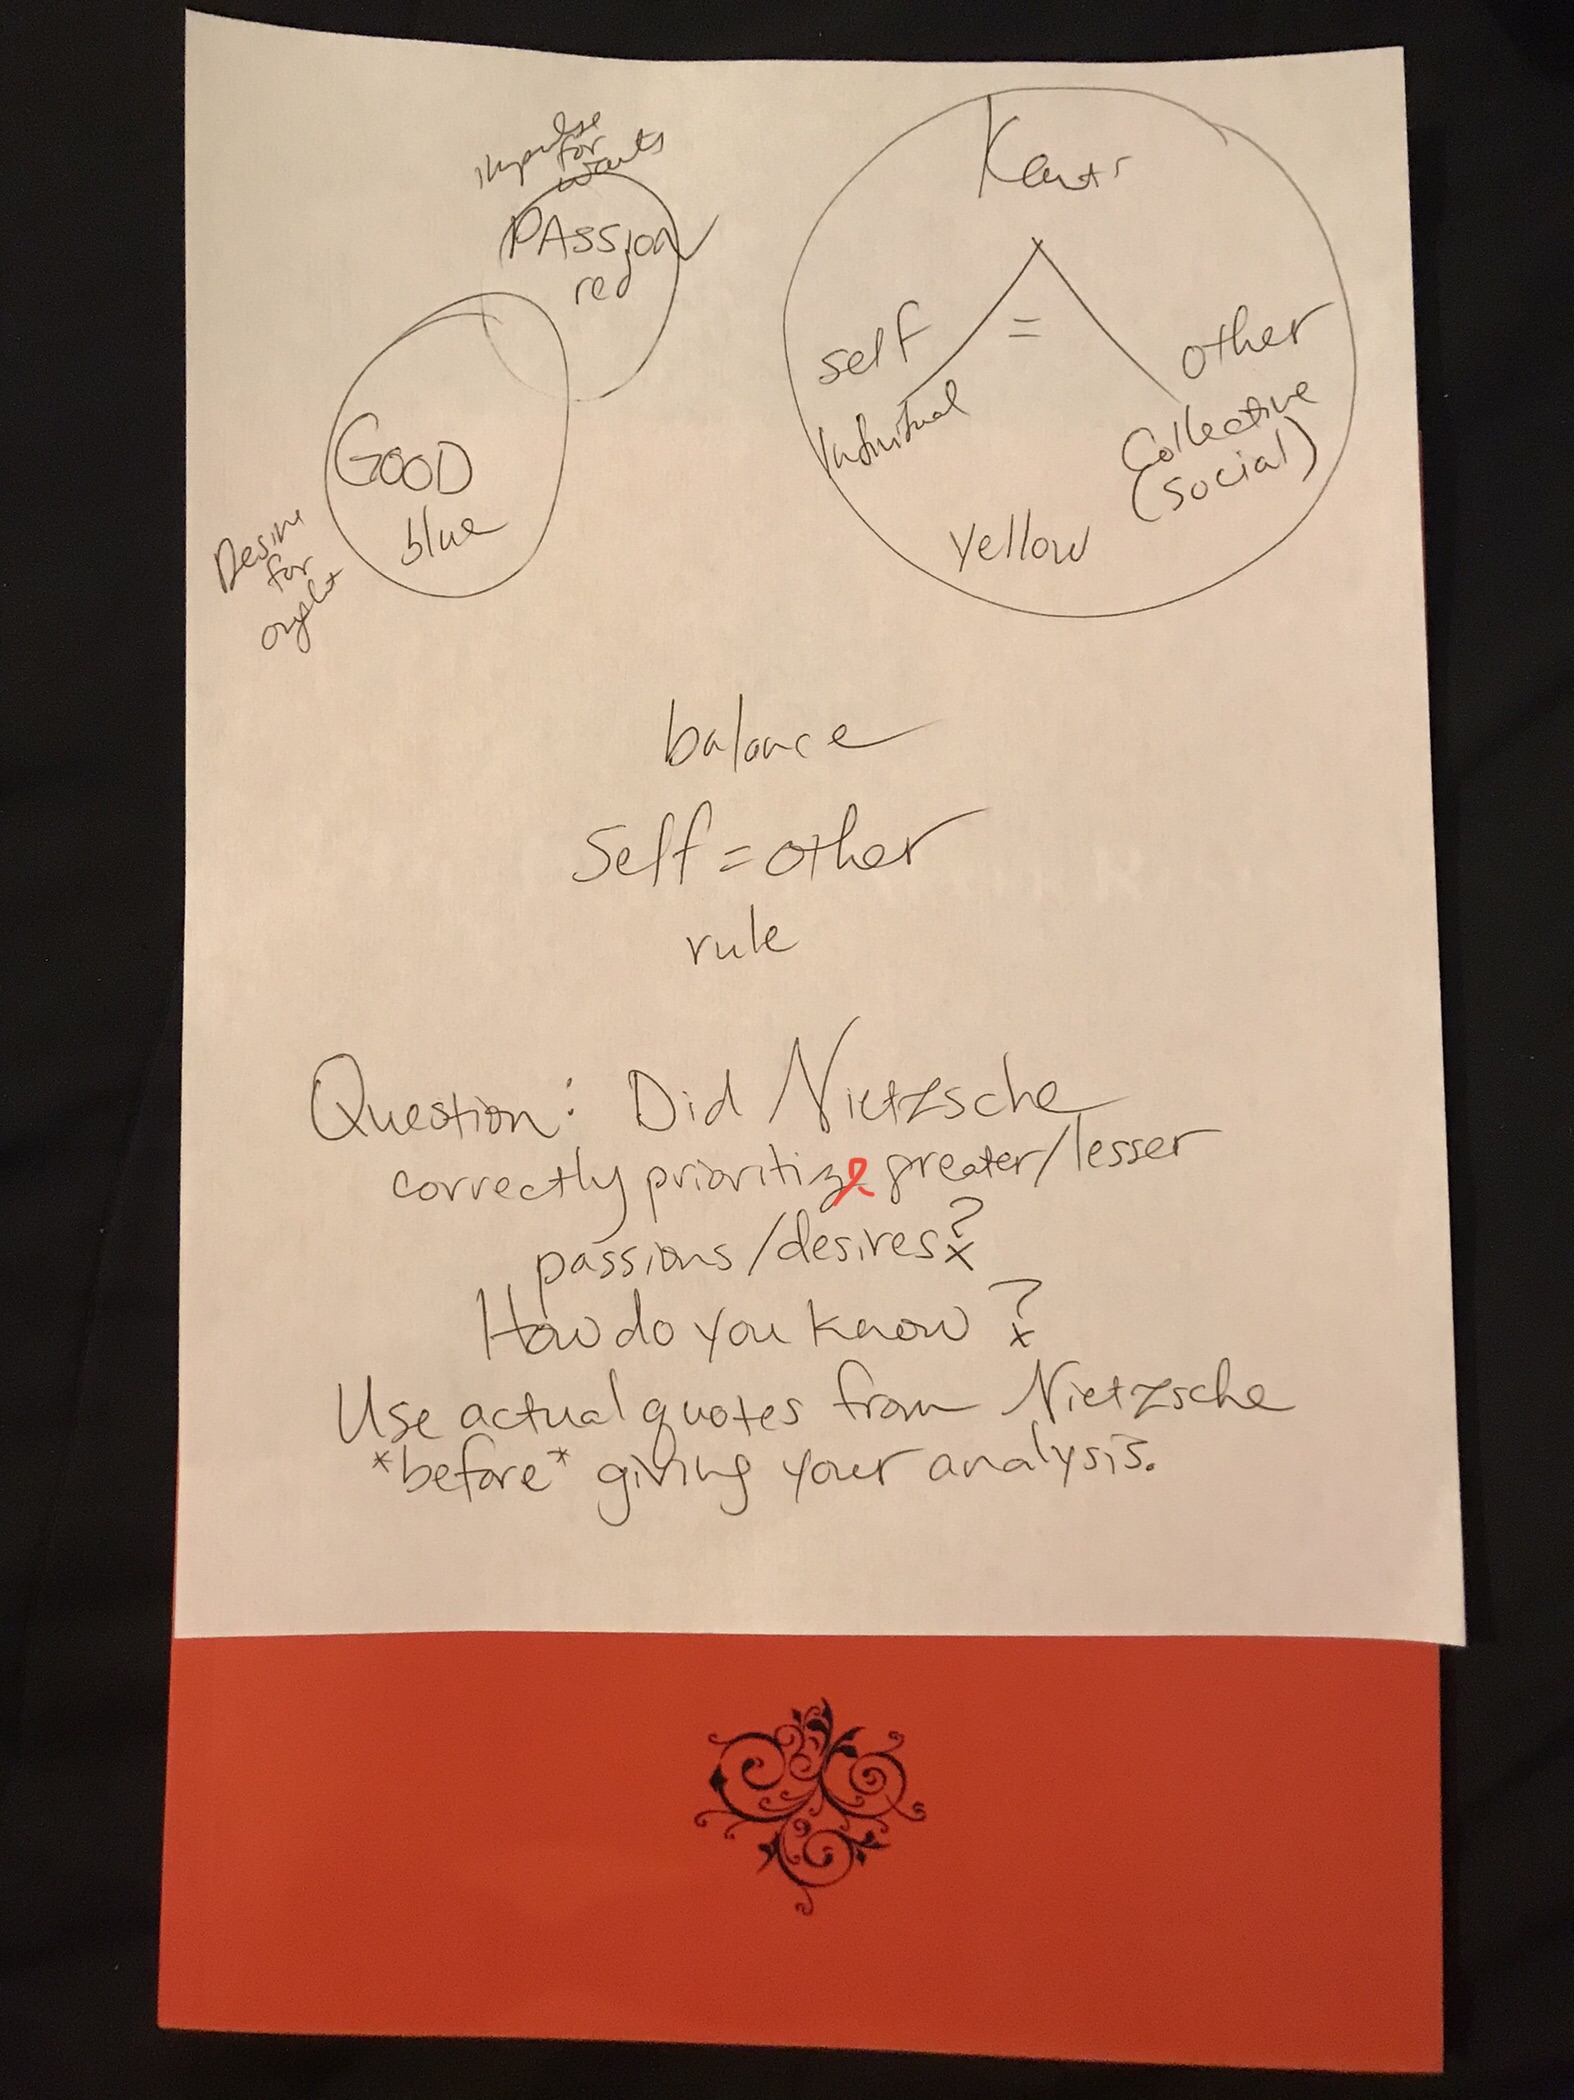 Impulse
for
wants
PASSION
red
GOOD
blue
Desire
for
ought
Kant
self
=
other
Individual
Collective
(social)
Yellow
balance
Self = other
rule
Question: Did Nietzsche
correctly prioritize greater/lesser
passions/desires?
How do you know?
Use actual quotes from Nietzsche
*before* giving your analysis.